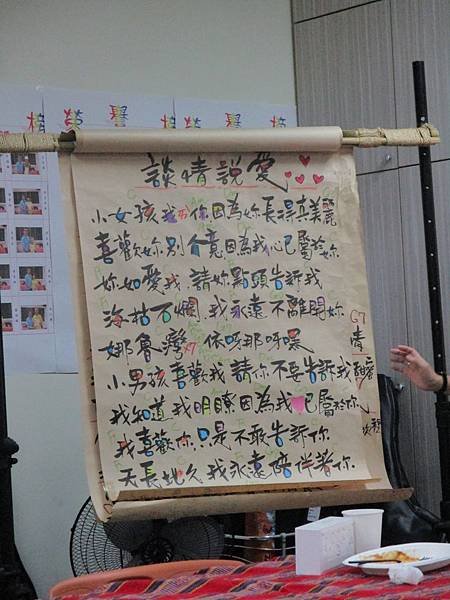 榜 榮 譽 榜 榮 譽
談情說愛
小女孩我お你因為妳長得真美麗
喜歡妳別介意因為我心已屬於妳
妳如愛我 請妳點頭告訴我
海枯石爛 我永遠不離開妳
娜魯灣 x7 依呀那呀嘿
小男孩喜歡我 請你不要告訴我
我知道我明瞭因為我已屬於你
我喜歡你只是不敢告訴你
天長地久 我永遠陪伴著你
G7
情
甜蜜